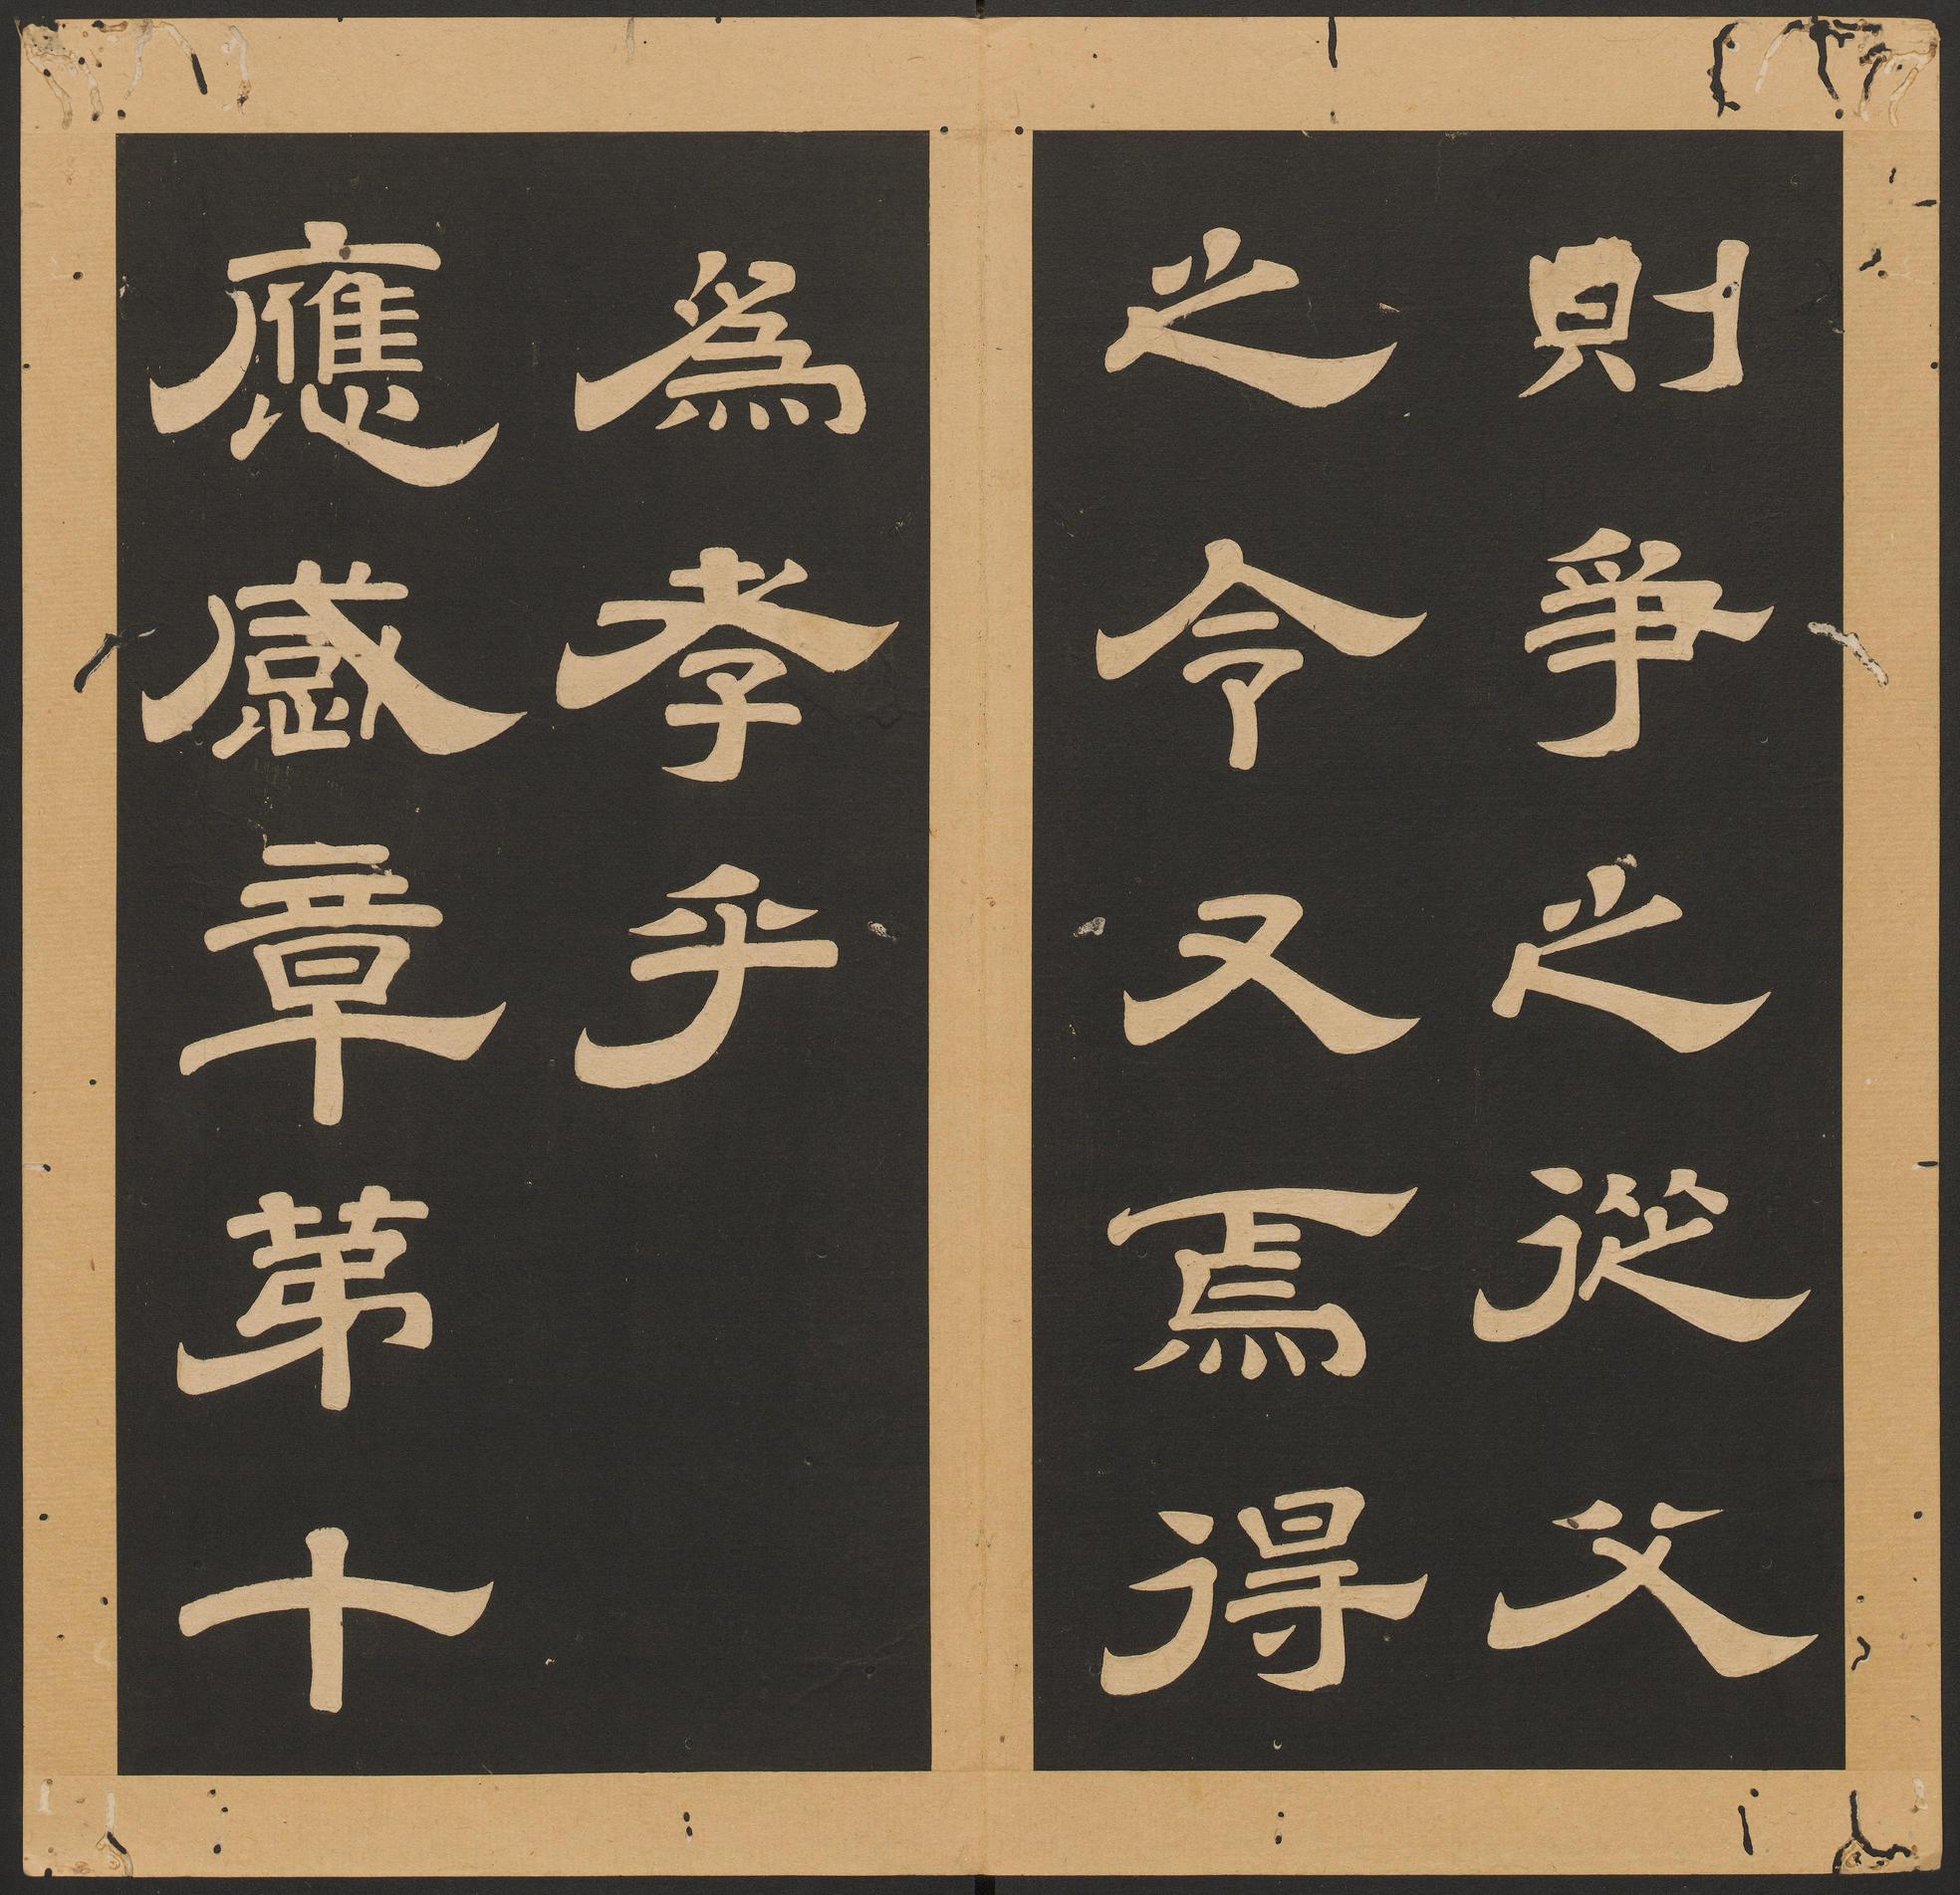 則爭之從父
之令又焉得
為孝乎
應感章苐十